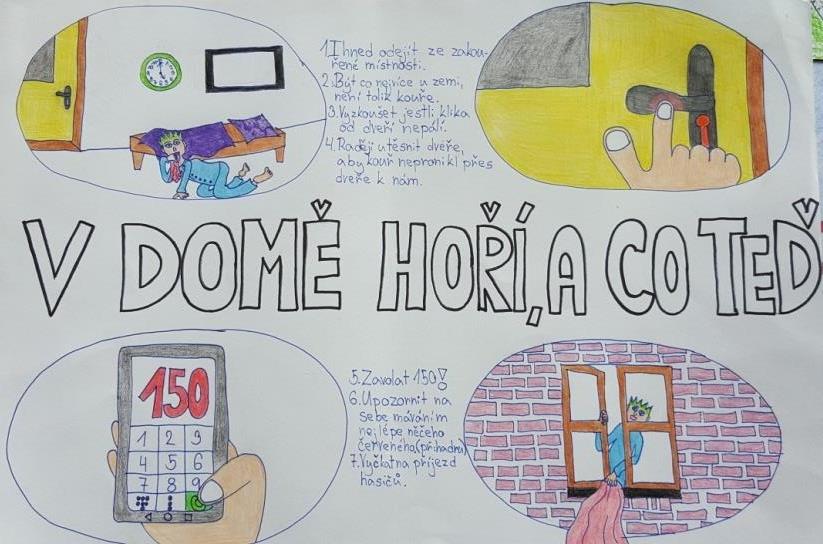 1.Ihned odejít ze zakou-
řené místnosti.
2.Být co nejvíce u zemi,
není tolik kouře.
3.Vyzkoušet jestli klika
od dveří nepálí.
4.Raději utěsnit dveře,
aby kouř nepronikl přes
dveře k nám.
V DOMĚ HOŘÍ, A CO TEĎ
150
1 2 3
4 5 6
7 8 9
5.Zavolat 150!
6.Upozornit na
sebe máváním
nejlépe něčeho
červeného
7.Vyčkat na příjezd
hasičů.